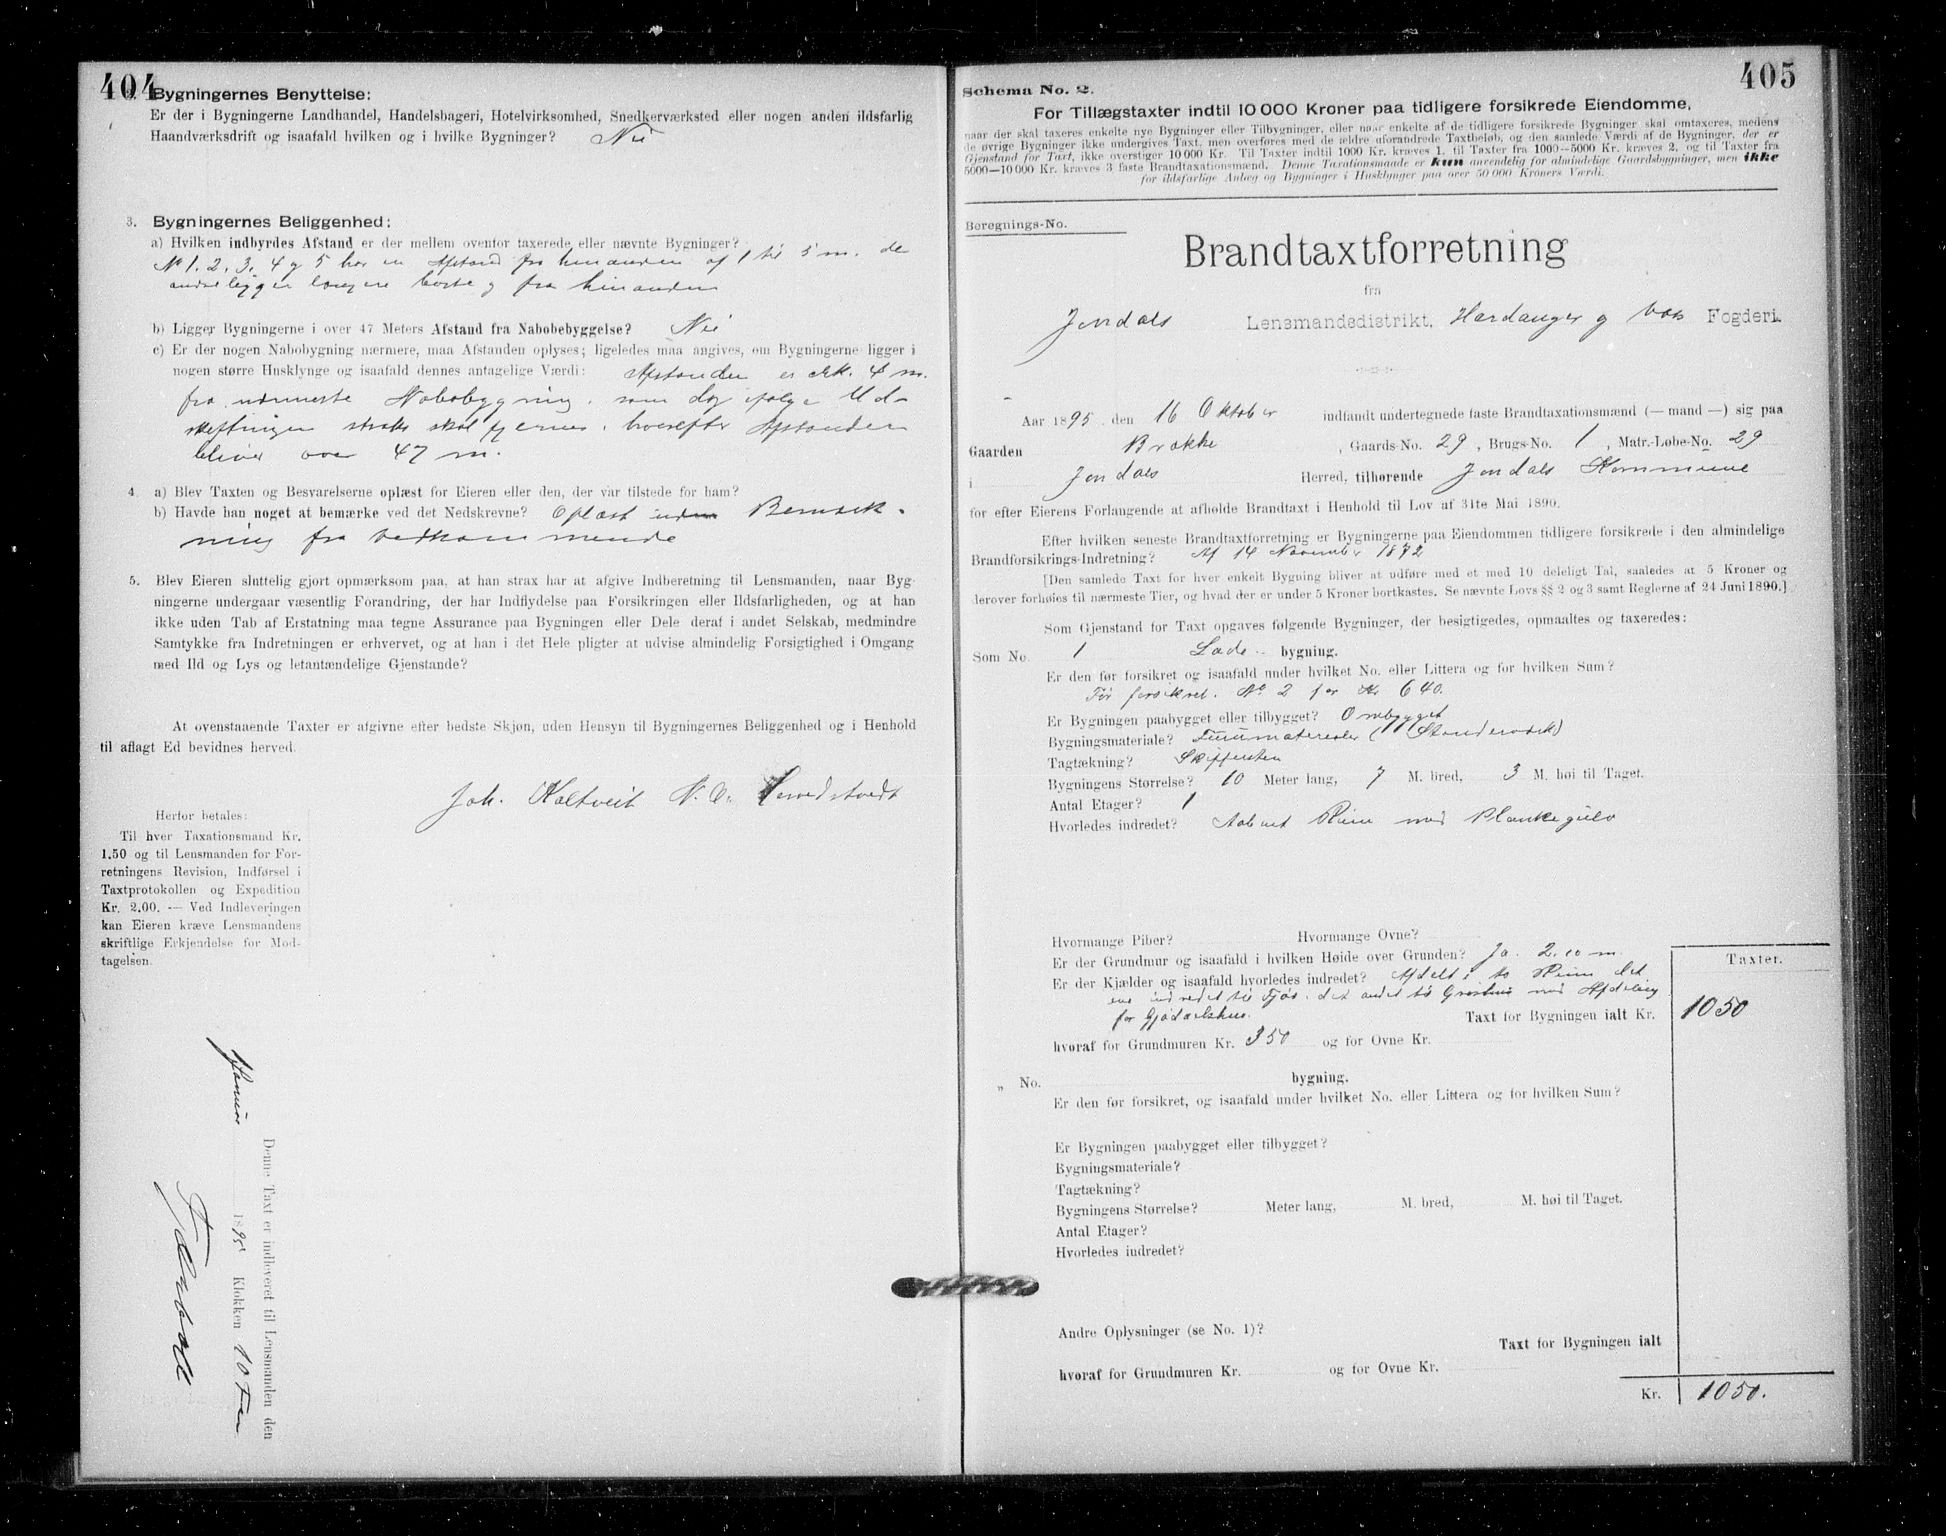 404
2. Bygningernes Benyttelse:
Er der i Bygningerne Landhandel, Handelsbageri, Hotelvirksomhed, Snedkerværksted eller nogen anden ildsfarlig
Haandværksdrift og isaafald hvilken og i hvilke Bygninger? Nei
3. Bygningernes Beliggenhed:
a) Hvilken indbyrdes Afstand er der mellem ovenfor taxerede eller nævnte Bygninger?
No 1. 2. 3. 4 og 5 har en Afstand fra hinanden af 1 til 5 m. de
andre ligger længere borte fra hinanden
b) Ligger Bygningerne i over 47 Meters Afstand fra Nabobebyggelse? Nei
c) Er der nogen Nabobygning nærmere, maa Afstanden oplyses; ligeledes maa angives, om Bygningerne ligger i
nogen større Husklynge og isaafald dennes antagelige Værdi: Afstanden er 4 m.
fra nærmeste Nabobygning, som dog ifølge Ud-
skiftningen straks skal fjernes, hvorefter Afstanden
bliver over 47 m.
4. a) Blev Taxten og Besvarelserne oplæst for Eieren eller den, der var tilstede for ham?
b) Havde han noget at bemærke ved det Nedskrevne? Oplæst uden Bemærk-
ning fra vedkommende
5. Blev Eieren sluttelig gjort opmærksom paa, at han strax har at afgive Indberetning til Lensmanden, naar Byg-
ningerne undergaar væsentlig Forandring, der har Indflydelse paa Forsikringen eller Ildsfarligheden, og at han
ikke uden Tab af Erstatning maa tegne Assurance paa Bygningen eller Dele deraf i andet Selskab, medmindre
Samtykke fra Indretningen er erhvervet, og at han i det Hele pligter at udvise almindelig Forsigtighed i Omgang
med Ild og Lys og letantændelige Gjenstande?
At ovenstaaende Taxter er afgivne efter bedste Skjøn, uden Hensyn til Bygningernes Beliggenhed og i Henhold
til aflagt Ed bevidnes herved.
Joh. Kaltveit N. O.
Herfor betales:
Til hver Taxationsmand Kr.
1.50 og til Lensmanden for For-
retningens Revision, Indførsel i
Taxtprotokollen og Expedition
Kr. 2.00. — Ved Indleveringen
kan Eieren kræve Lensmandens
skriftlige Erkjendelse for Mod-
tagelsen.
Denne Taxt er indleveret til Lensmanden den
Januar 1895 Klokken 10 F
405
Schema No. 2.
For Tillægstaxter indtil 10 000 Kroner paa tidligere forsikrede Eiendomme,
naar der skal taxeres enkelte nye Bygninger eller Tilbygninger, eller naar enkelte af de tidligere forsikrede Bygninger skal omtaxeres, medens
de øvrige Bygninger ikke undergives Taxt, men overføres med de ældre uforandrede Taxtbeløb, og den samlede Værdi af de Bygninger, der er
Gjenstand for Taxt, ikke overstiger 10 000 Kr. Til Taxter indtil 1000 Kr. kræves 1, til Taxter fra 1000—5000 Kr. kræves 2, og til Taxter fra
5000—10 000 Kr. kræves 3 faste Brandtaxationsmænd. Denne Taxationsmaade er kun anvendelig for almindelige Gaardsbygninger, men ikke
for ildsfarlige Anlæg og Bygninger i Husklynger paa over 50 000 Kroners Værdi.
Beregnings-No.
Brandtaxtforretning
fra
Jondals Lensmandsdistrikt, Hardanger og Vos Fogderi.
Aar 1895 den 16 Oktober indfandt undertegnede faste Brandtaxationsmænd (— mand —) sig paa
Gaarden Brække, Gaards-No. 29, Brugs-No. 1, Matr.-Løbe-No. 29
i Jondals Herred, tilhørende Jondals Kommune
for efter Eierens Forlangende at afholde Brandtaxt i Henhold til Lov af 31te Mai 1890.
Efter hvilken seneste Brandtaxtforretning er Bygningerne paa Eiendommen tidligere forsikrede i den almindelige
Brandforsikrings-Indretning? Af 14 November 1872
[Den samlede Taxt for hver enkelt Bygning bliver at udføre med et med 10 deleligt Tal, saaledes at 5 Kroner og
derover forhøies til nærmeste Tier, og hvad der er under 5 Kroner bortkastes. Se nævnte Lovs §§ 2 og 3 samt Reglerne af 24 Juni 1890.]
Som Gjenstand for Taxt opgaves følgende Bygninger, der besigtigedes, opmaaltes og taxeredes:
Som No. 1 Lade- bygning.
Er den før forsikret og isaafald under hvilket No. eller Littera og for hvilken Sum?
Før forsikret. No 2 for Kr 640.
Er Bygningen paabygget eller tilbygget? Ombygget
Bygningsmateriale? Furumaterialer (Standerværk)
Tagtækning? Skiffersten
Bygningens Størrelse? 10 Meter lang, 7 M. bred, 3 M. høi til Taget.
Antal Etager? 1
Hvorledes indredet? Aabent Rum med Plankegulv
Hvormange Piber? Hvormange Ovne?
Er der Grundmur og isaafald i hvilken Høide over Grunden? Ja. 2.10 m.
Er der Kjælder og isaafald hvorledes indredet? Afdelt i to Rum det
ene indredet til Fjøs. det andet til med Afdeling
for Gjødselshus. Taxt for Bygningen ialt Kr.
Taxter.
1050
hvoraf for Grundmuren Kr. 350 og for Ovne Kr.
„ No. bygning.
Er den før forsikret, og isaafald under hvilket No. eller Littera og for hvilken Sum?
Er Bygningen paabygget eller tilbygget?
Bygningsmateriale?
Tagtækning?
Bygningens Størrelse? Meter lang, M. bred, M. høi til Taget.
Antal Etager?
Hvorledes indredet?
Andre Oplysninger (se No. 1)?
Taxt for Bygningen ialt
hvoraf for Grundmuren Kr. og for Ovne Kr.
Kr. 1050.